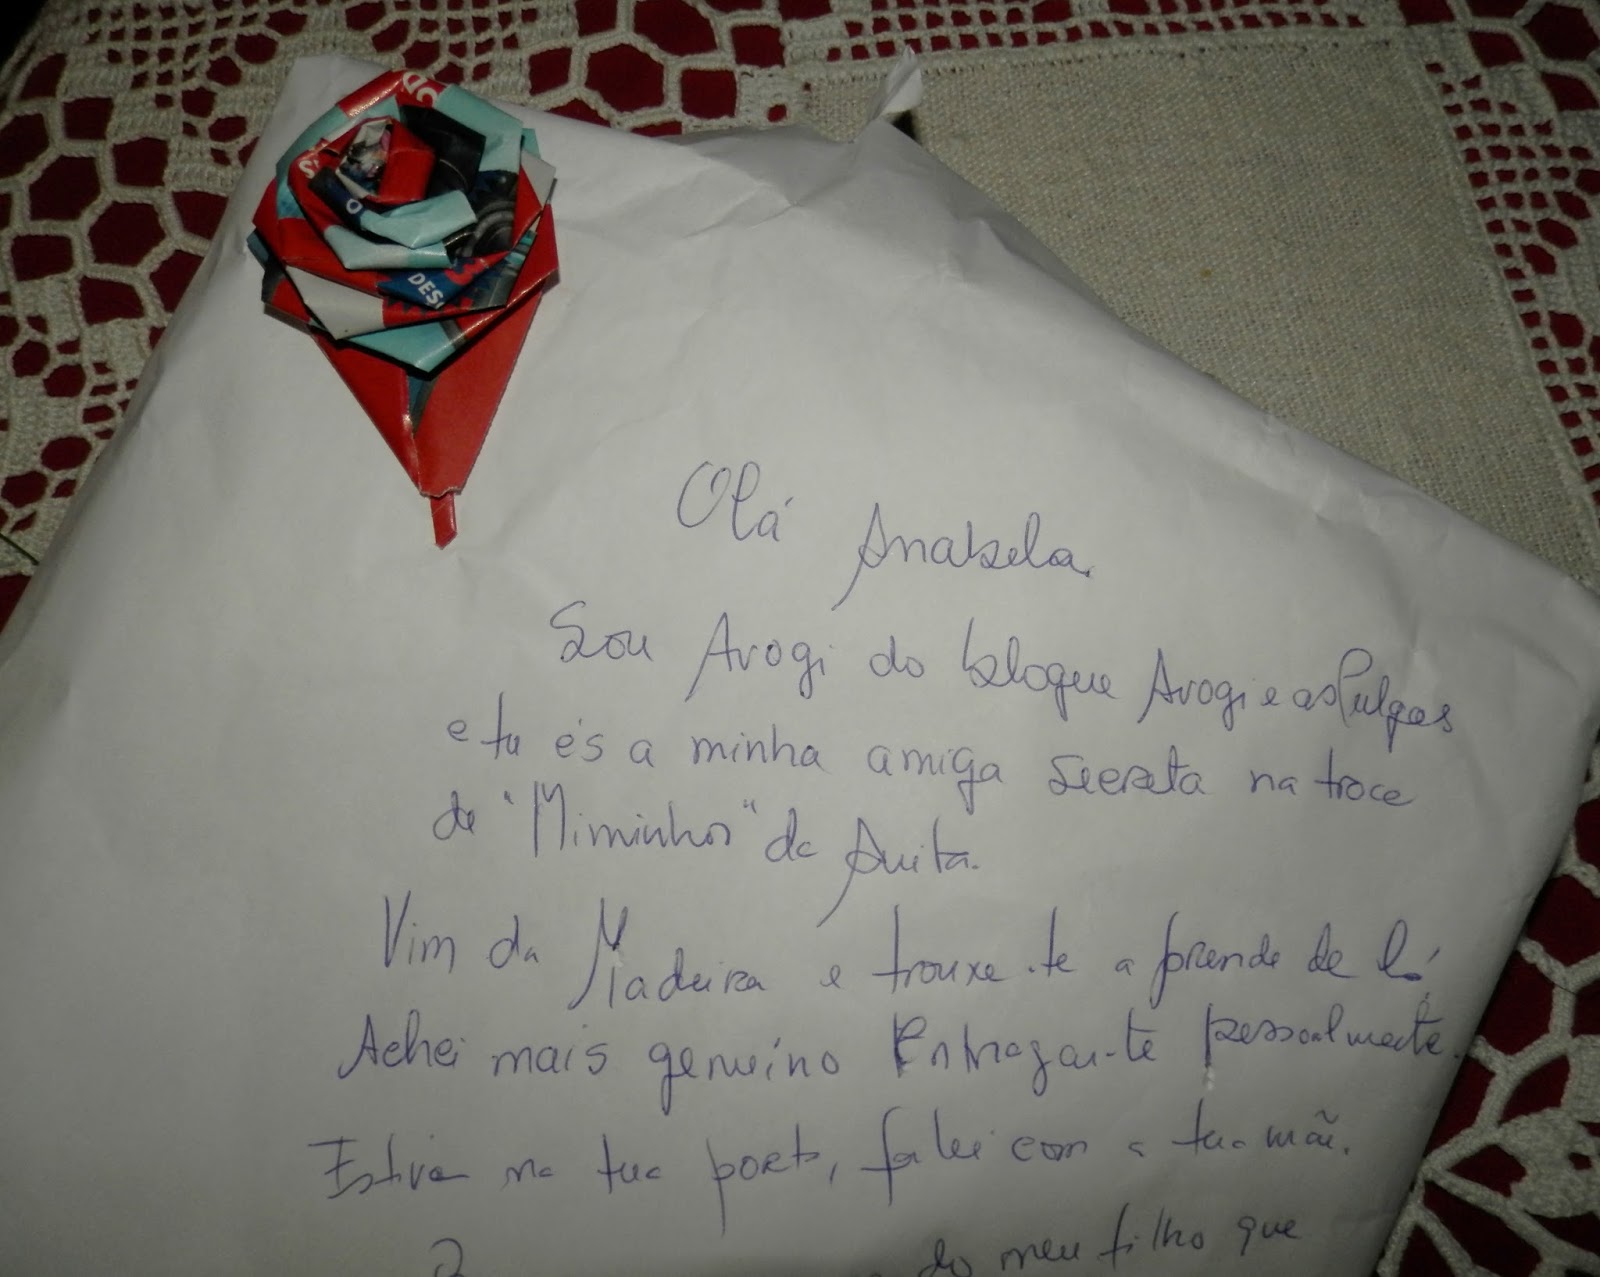 DESC
Olá Anabela.
Sou Avogi do blogue Avogi e as Pulgas
e tu és a minha amiga secreta na troca
de "Miminhos" da Anita.
Vim da Madeira e trouxe-te a prenda de lá.
Achei mais genuíno entregar-te pessoalmente.
Estive na tua porta, falei com a tua mãe.
do meu filho que